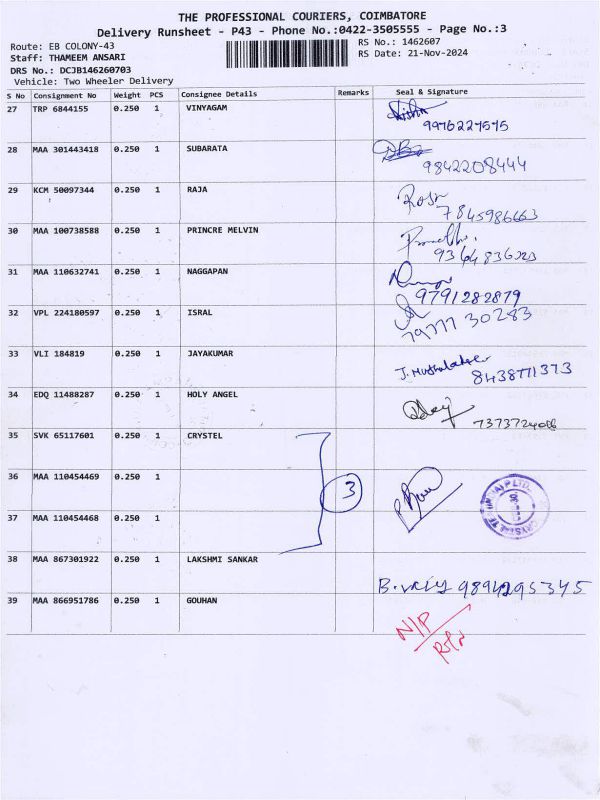 THE PROFESSIONAL COURIERS, COIMBATORE
Delivery Runsheet - P43 - Phone No.:0422-3505555 - Page No.:3
Route: EB COLONY-43
RS No.: 1462607
Staff: THAMEEM ANSARI
RS Date: 21-Nov-2024
DRS No.: DCJB146260703
Vehicle: Two Wheeler Delivery
S No Consignment No Weight PCS Consignee Details Remarks Seal & Signature
27 TRP 6844155 0.250 1 VINYAGAM
9976227575
28 MAA 301443418 0.250 1 SUBARATA
9842208444
29 KCM 50097344 0.250 1 RAJA
7845986663
30 MAA 100738588 0.250 1 PRINCRE MELVIN
31 MAA 110632741 0.250 1 NAGGAPAN
9791282879
32 VPL 224180597 0.250 1 ISRAL
33 VLI 184819 0.250 1 JAYAKUMAR
8438771373
34 EDQ 11488287 0.250 1 HOLY ANGEL
35 SVK 65117601 0.250 1 CRYSTEL
36 MAA 110454469 0.250 1
3
37 MAA 110454468 0.250 1
38 MAA 867301922 0.250 1 LAKSHMI SANKAR
39 MAA 866951786 0.250 1 GOUHAN
N/P